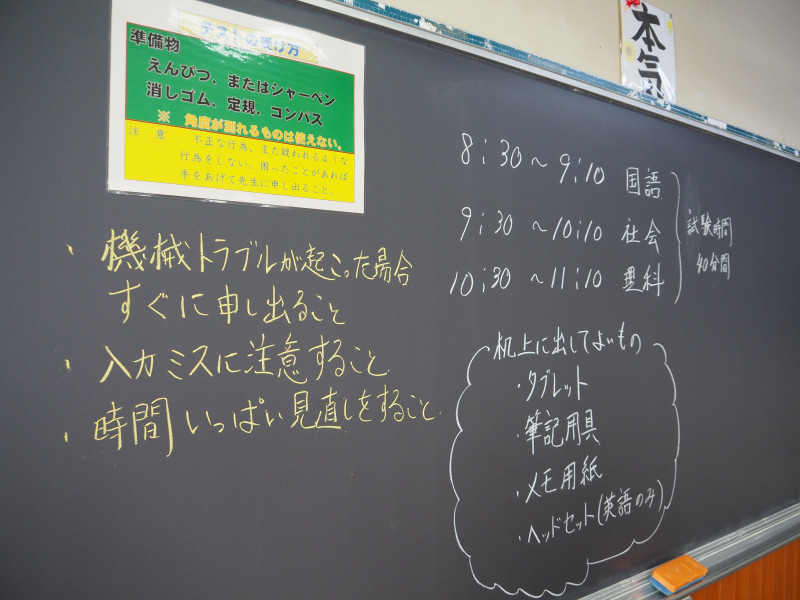 テストの受け方
準備物
えんぴつ、またはシャーペン
消しゴム、定規、コンパス
※ 角度が測れるものは使えない。
注 意 不正な行為、また疑われるような
行為をしない。困ったことがあれば
手をあげて先生に申し出ること。
・機械トラブルが起こった場合
すぐに申し出ること
・入力ミスに注意すること
・時間いっぱい見直しをすること
本気
8:30〜9:10 国語
9:30〜10:10 社会
10:30〜11:10 理科
試験時間
40分間
机上に出してよいもの
・タブレット
・筆記用具
・メモ用紙
・ヘッドセット(英語のみ)